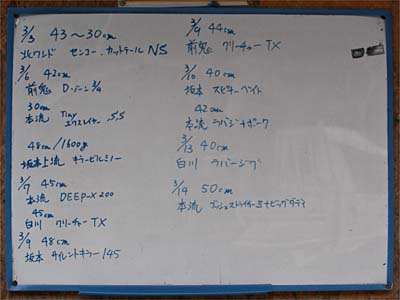 3/3 43〜30cm
北ワンド センコー.カットテール NS
3/6 42cm
前鬼 D.ゾーン 3/4
30cm
本流 Tiny 5,5
48cm/1600g
坂本上流 キラービルミノー
3/7 45cm
本流 DEEP-X 200
45cm
白川 クリーチャー TX
3/9 48cm
坂本 サイレントキラー 145
3/9 44cm
前鬼 クリーチャー TX
3/10 40cm
坂本 スピナーベイト
42cm
本流 ラバジ+ポーク
3/13 40cm
白川 ラバージグ
3/14 50cm
本流